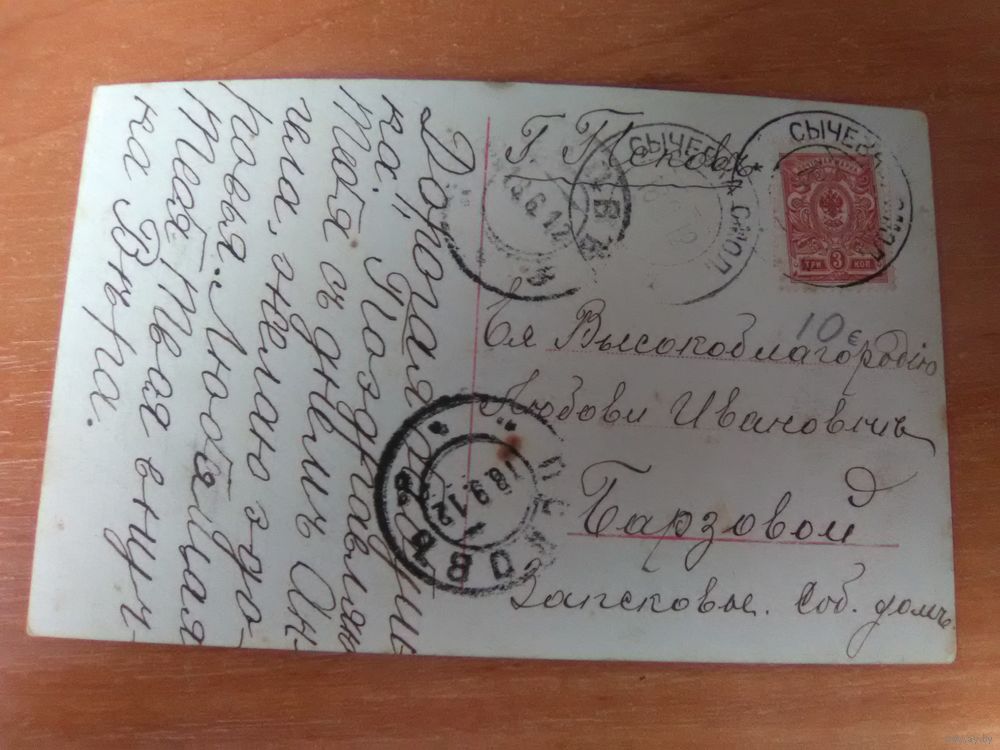 Дорогая бабуш-
ка! Поздравляю
Тебя съ днемъ Ан-
гела, желаю здо-
ровья. Любящая
Тебя Твоя внуч-
ка Вѣра.
Г. Псковъ
СЫЧЕВК
СМОЛ
СЫЧЕВ
СМОЛ
ТРИ 3 КОП
10 €
Ея Высокоблагородію
Любови Ивановнѣ
Барзовой
Запсковье. Соб. домъ.
ПСКОВЪ
18 9 12